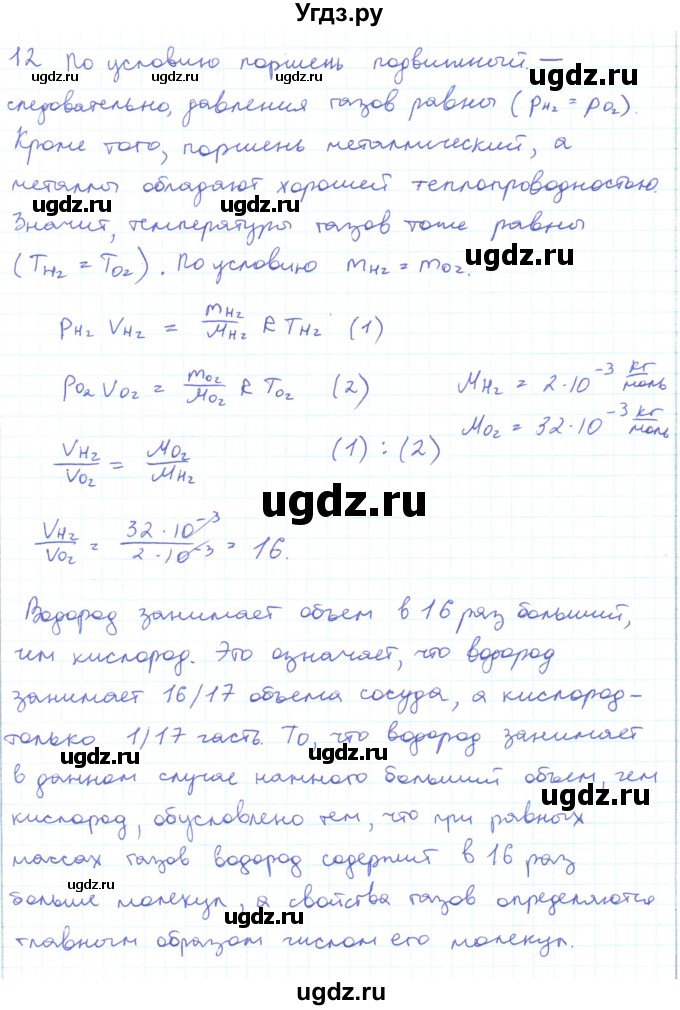 Угдз.ру
12 По условию поршень подвижный —
ugdz.ru ugdz.ru
следовательно, давления газов равны (pH₂ = pO₂).
ugdz.ru
Кроме того, поршень металлический, а
металлы обладают хорошей теплопроводностью.
ugdz.ru ugdz.ru
Значит, температуры газов тоже равны
(TH₂ = TO₂). По условию mH₂ = mO₂.
ugdz.ru
pH₂ VH₂ = mH₂/MH₂ R TH₂ (1)
pO₂ VO₂ = mO₂/MO₂ R TO₂ (2) MH₂ = 2·10⁻³ кг/моль
MO₂ = 32·10⁻³ кг/моль
VH₂/VO₂ = MO₂/MH₂ (1) : (2)
ugdz.ru
VH₂/VO₂ = 32·10⁻³/2·10⁻³ = 16.
Водород занимает объем в 16 раз больший,
чем кислород. Это означает, что водород
занимает 16/17 объема сосуда, а кислород -
ugdz.ru
только 1/17 часть. То, что водород занимает
ugdz.ru
в данном случае намного больший объем, чем
ugdz.ru
кислород, обусловлено тем, что при равных
массах газов водород содержит в 16 раз
ugdz.ru
больше молекул, а свойства газов определяются
ugdz.ru
главным образом числом его молекул.
ugdz.ru